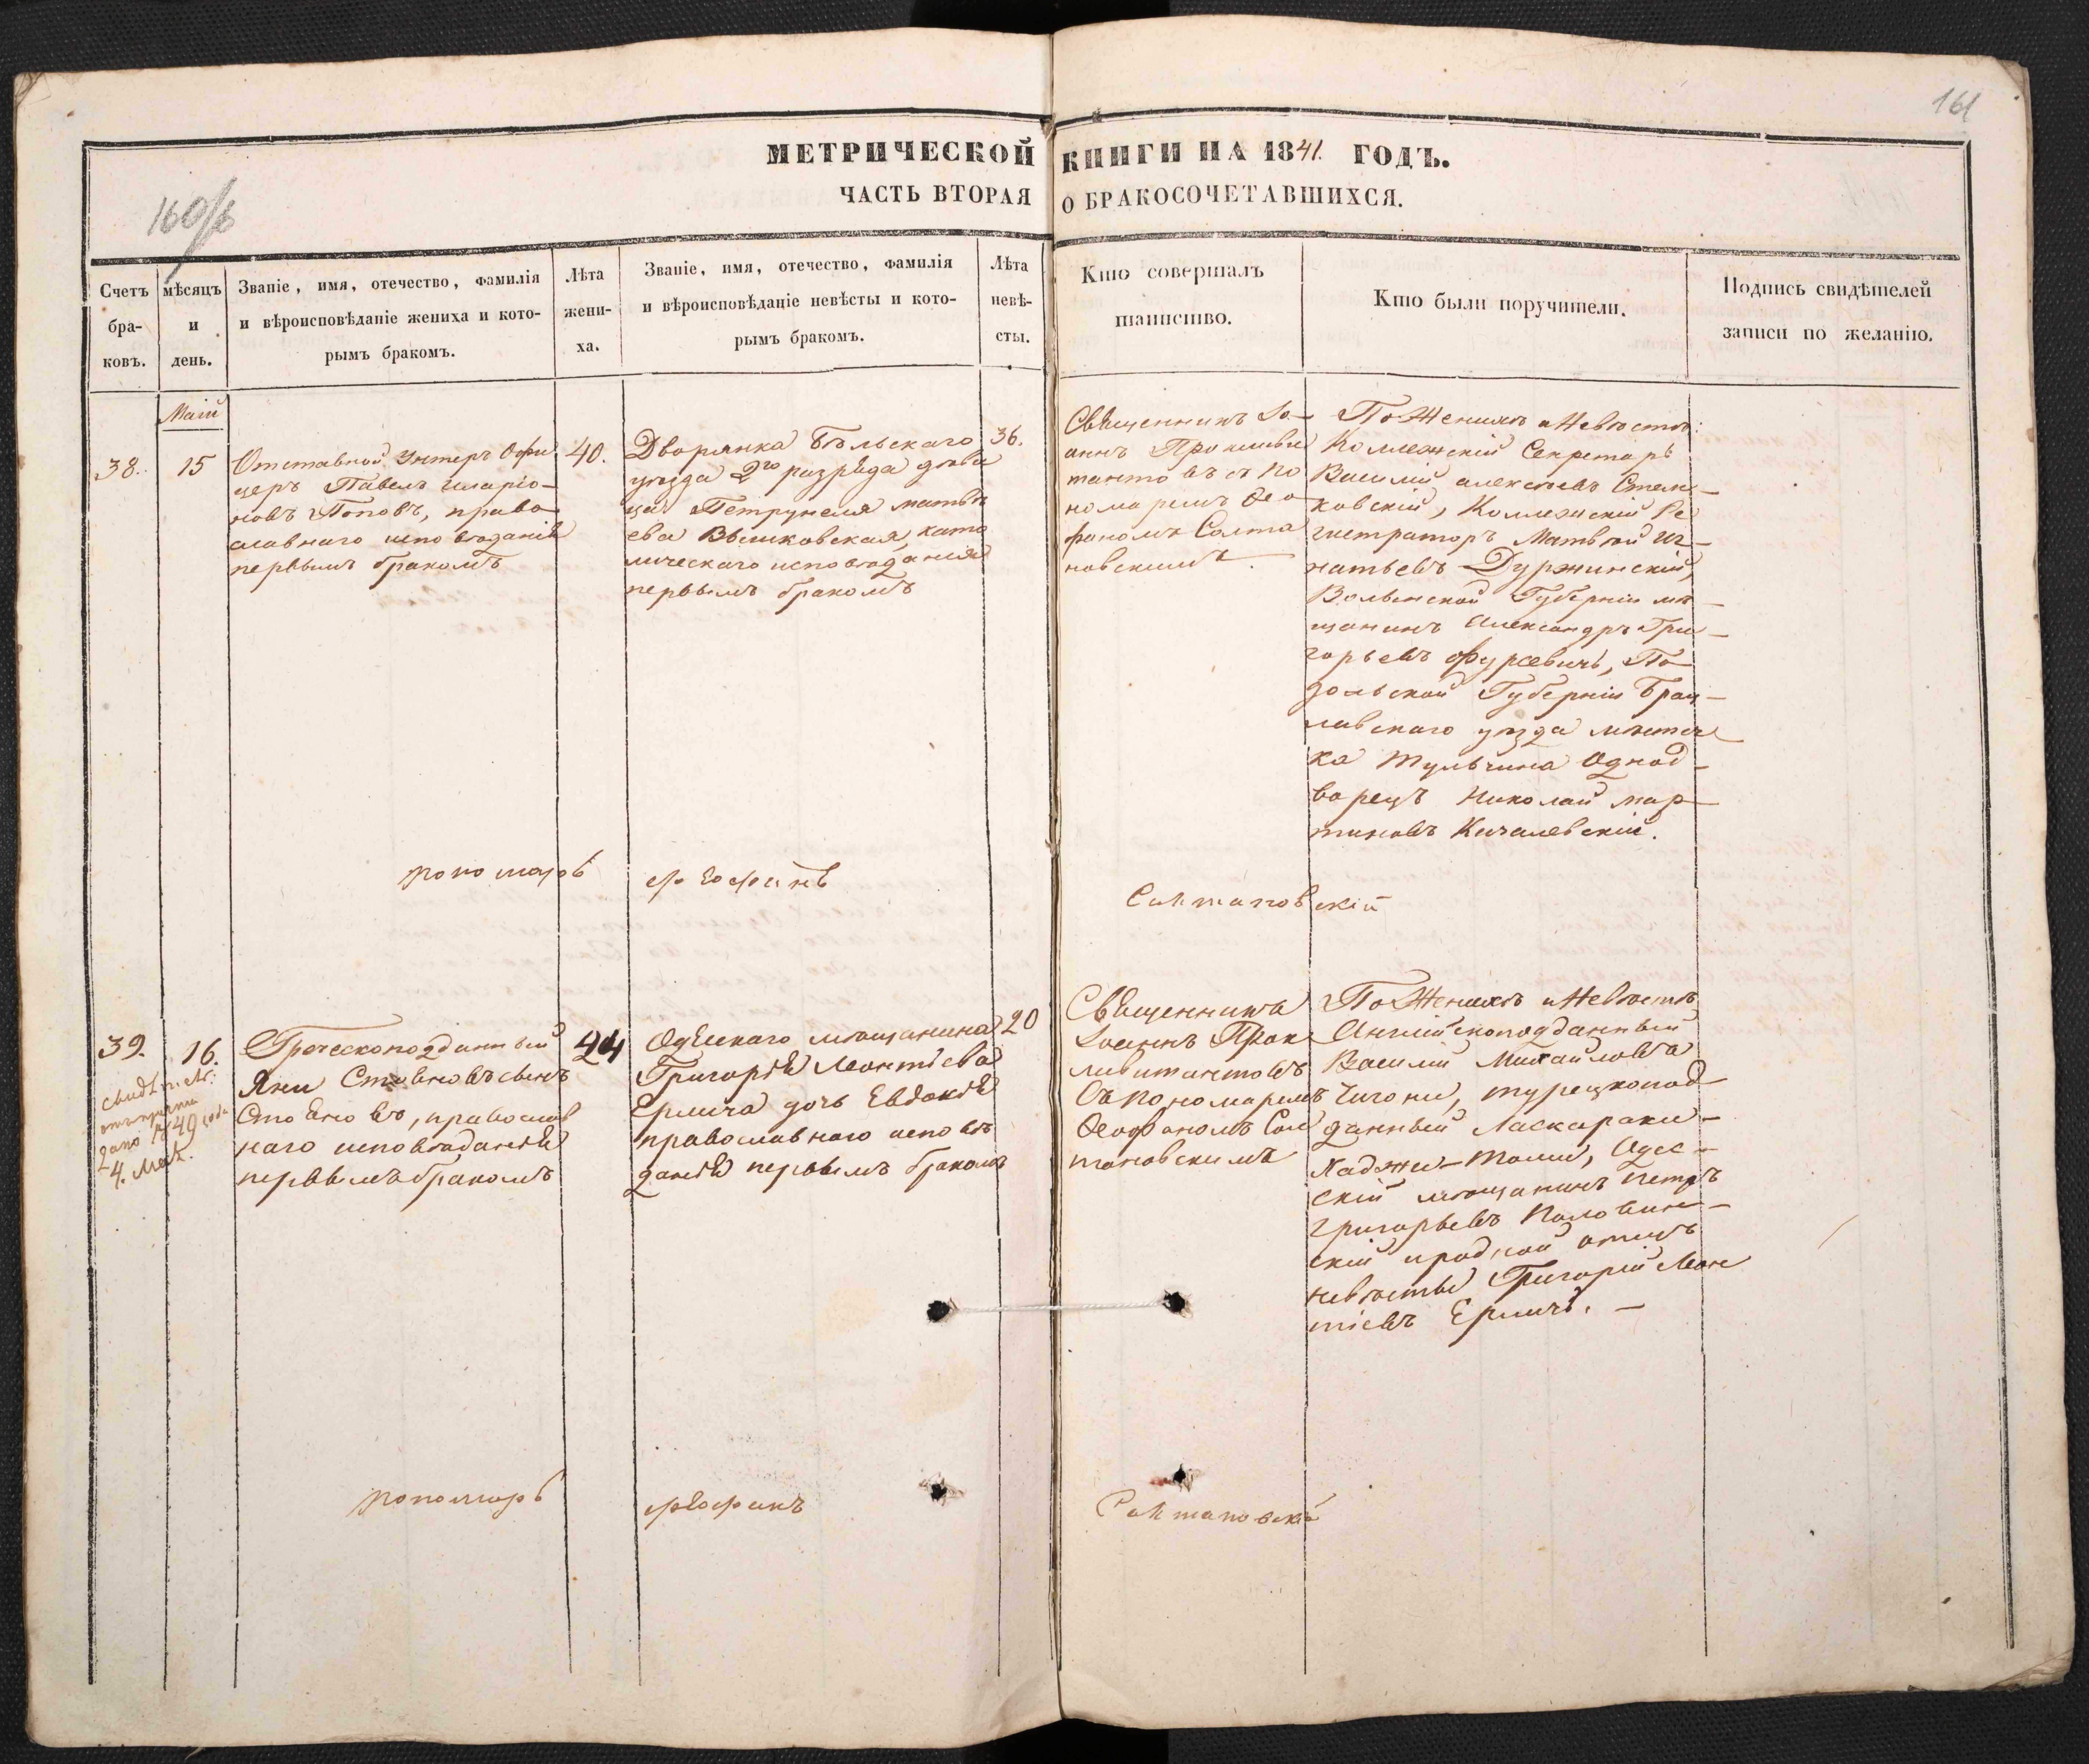 161
160/б
МЕТРИЧЕСКОЙ КНИГИ НА 1841. ГОДЪ.
ЧАСТЬ ВТОРАЯ О БРАКОСОЧЕТАВШИХСЯ.
Счетъ
бра-
ковъ.
мѣсяцъ
и
день.
Званіе, имя, отечество, фамилія
и вѣроисповѣданіе жениха и кото-
рымъ бракомъ.
Лѣта
жени-
ха.
Званіе, имя, отечество, фамилія
и вѣроисповѣданіе невѣсты и кото-
рымъ бракомъ.
Лѣта
невѣ-
сты.
Кто совершалъ
таинство.
Кто были поручители.
Подпись свидѣтелей
записи по желанію.
Маій
38.
15
Отставной Унтеръ Офи
церъ Павелъ Иларіо-
новъ Поповъ, право
славнаго исповѣданія
первымъ бракомъ
40.
Дворянка Бѣльскаго
уѣзда 2го разряда дѣви
ца Петрунеля Матвѣ
ева Выликовская, като
лическаго исповѣданія
первымъ бракомъ
36.
Священникъ Іо-
аннъ Прокиви
тантовъ съ по
номаремъ Ѳео
фаномъ Солта
новскимъ.
По Женихѣ и Невѣстѣ:
Коллежскій Секретарь
Василій Алексѣевъ Стан-
ковскій, Коллежскій Ре
гистраторъ Матвѣй Иг-
натьевъ Дуржинскій,
Волынской Губерніи мѣ-
щанинъ Александръ Гри-
горьевъ Фурсевичъ, По
дольской Губерніи Брац-
лавскаго уѣзда мѣстеч
ка Тульчина Однод-
ворецъ Николай Мар-
тиновъ Качалевскій.
пономарь Феофанъ Салтановскій
39.
16.
4. Мая.
Греческоподданный
Яни Стовновъ сынъ
Стовновъ, православ
наго исповѣданія
первымъ бракомъ
24
Одесскаго мѣщанина
Григорія Леонтіева
Ермича дочь Евдокія
православнаго исповѣ
данія первымъ бракомъ
20
Священникъ
Іоаннъ Прок
ливитантовъ
съ пономаремъ
Ѳеофаномъ Сол
тановскимъ
По Женихѣ и Невѣстѣ
Англійскоподданный
Василій Михайловъ
Чигони, турецкопод-
данный Ласкараки-
Хаджи-Томи, Одес-
скій мѣщанинъ Петръ
Григорьевъ Половин-
скій и родной отецъ
невѣсты Григорій Леон
тіевъ Ермичъ. -
пономарь Феофанъ Салтановскій